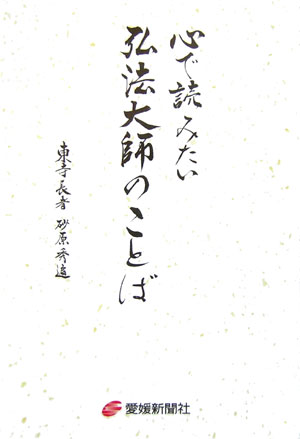 心で読みたい
弘法大師のことば
東寺長者 砂原秀遍
愛媛新聞社